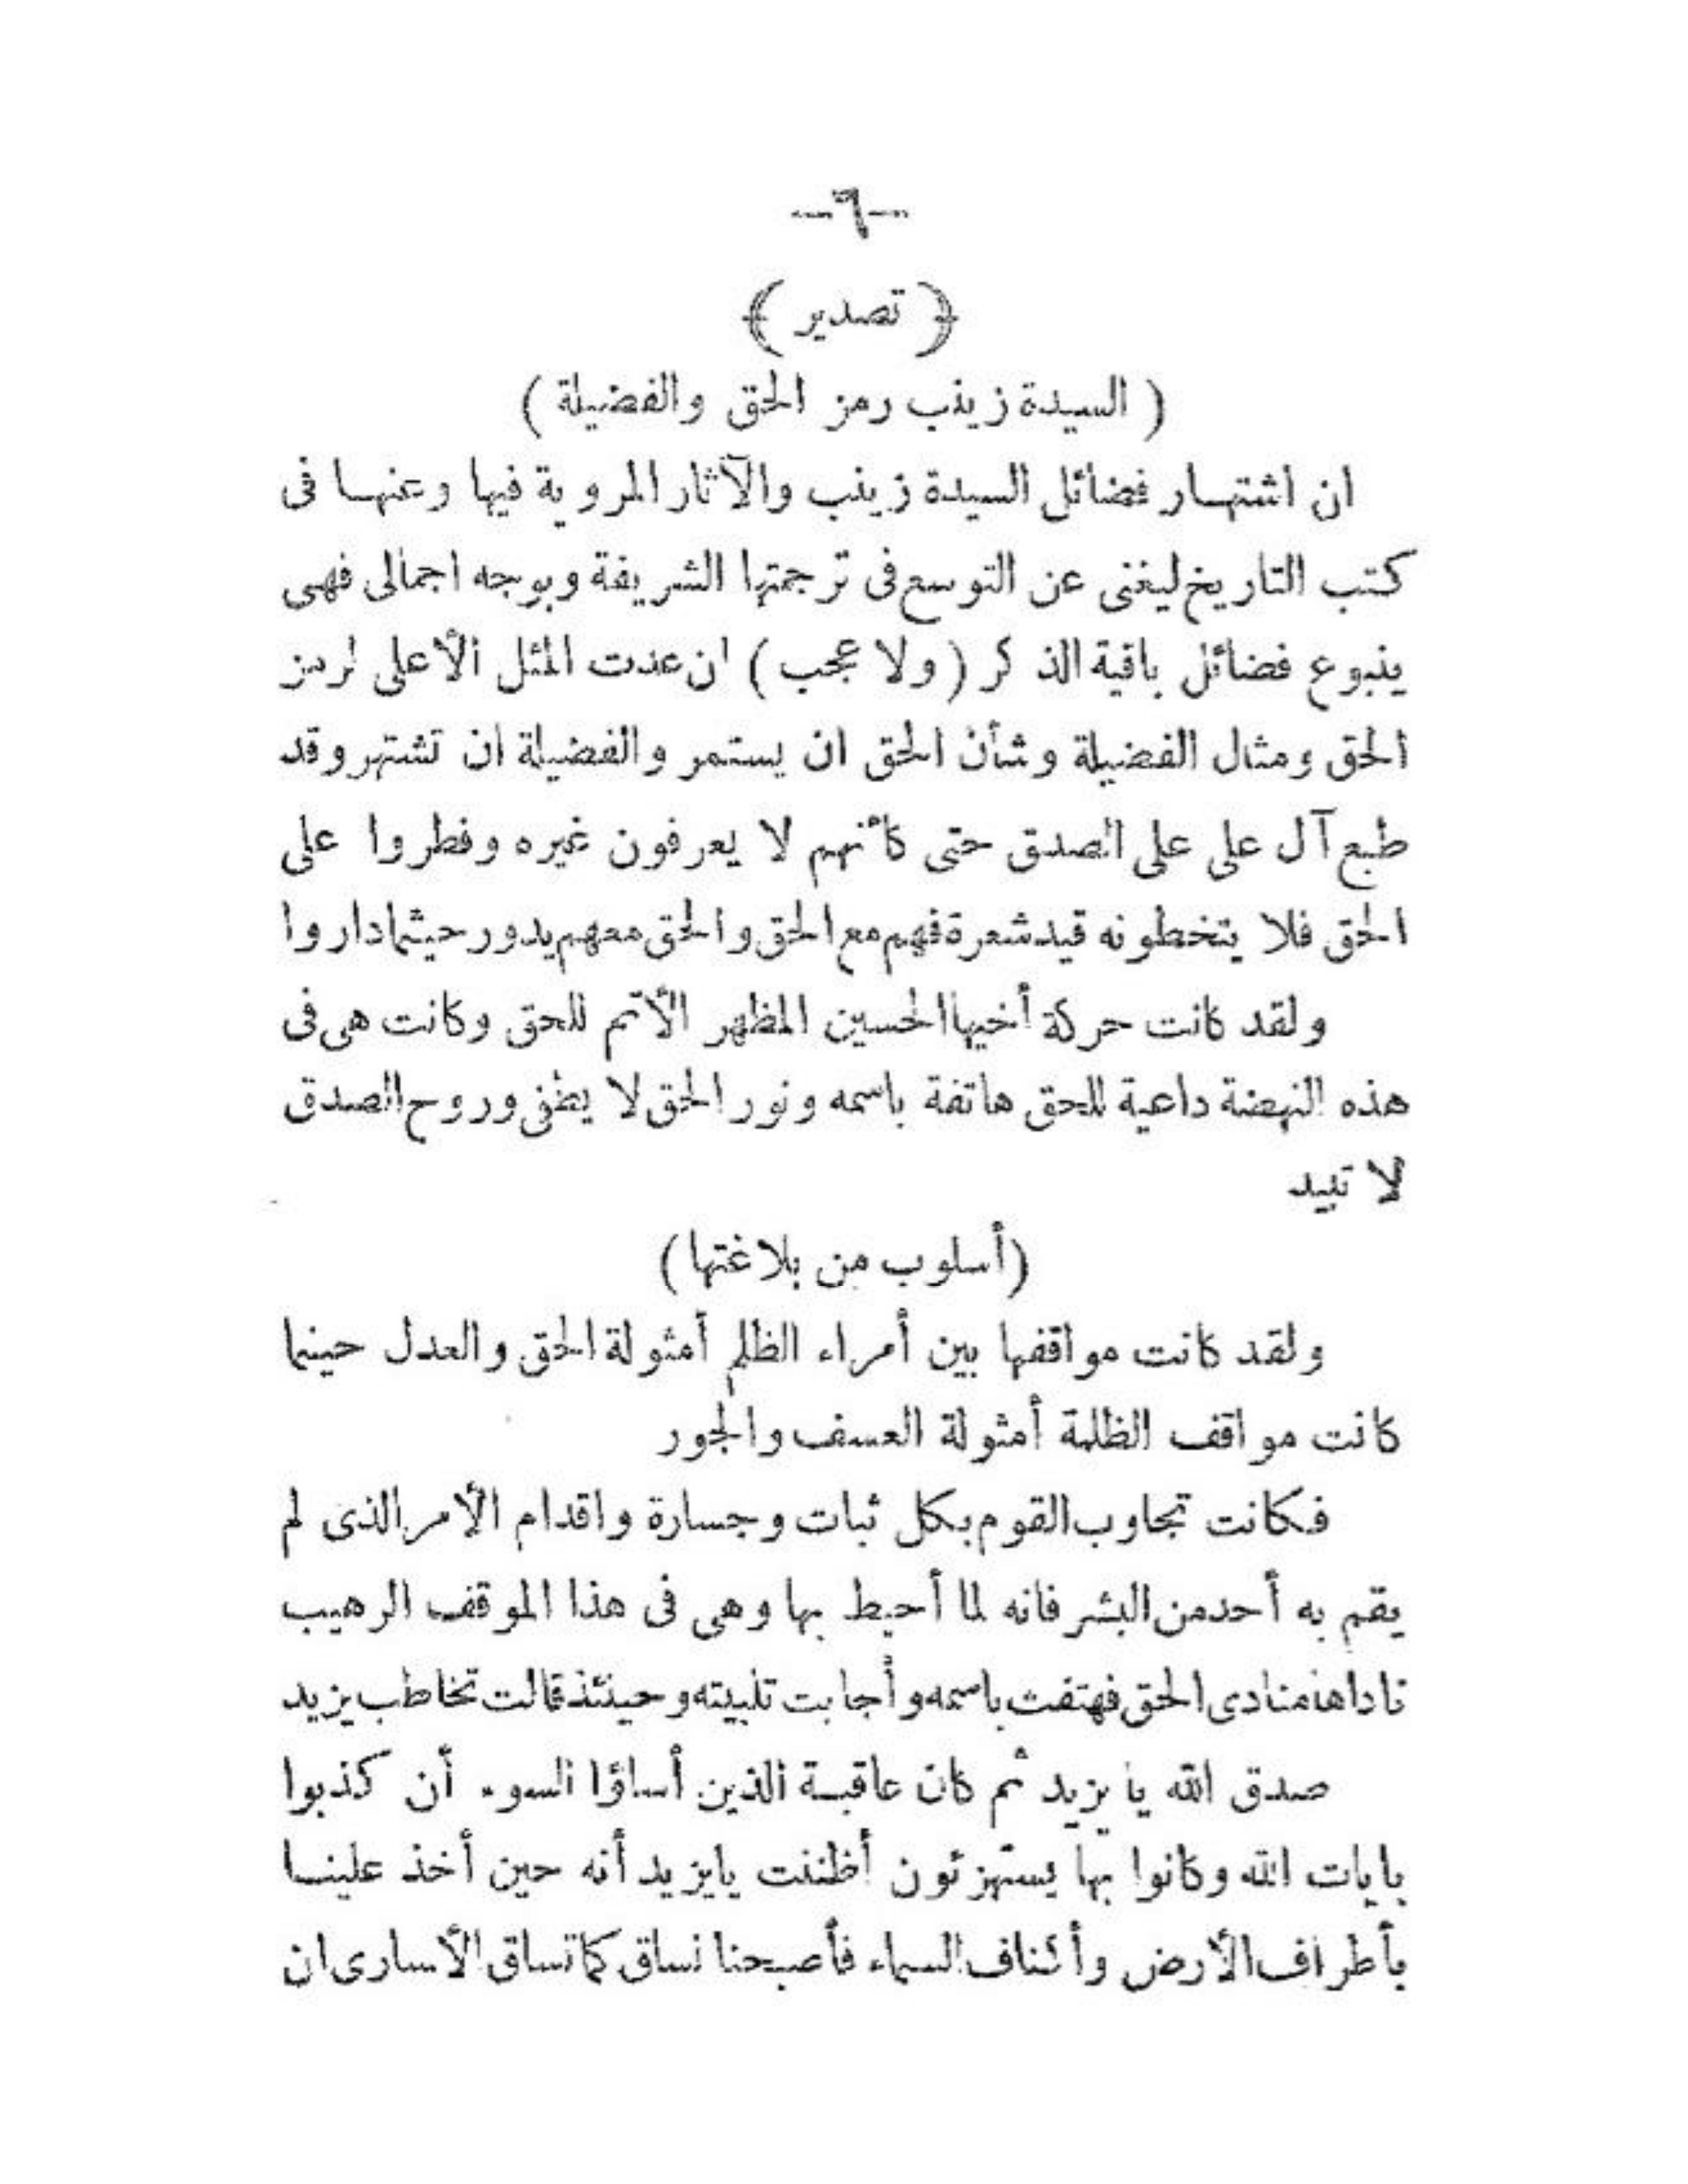 —٦—
﴿ تصدير ﴾
( السيدة زينب رمز الحق والفضيلة )
ان اشتهار فضائل السيدة زينب والآثار المروية فيها وعنها فى
كتب التاريخ ليغنى عن التوسع فى ترجمتها الشريفة وبوجه اجمالى فهى
ينبوع فضائل باقية الذكر ( ولا عجب ) ان عدت المثل الأعلى لرمز
الحق ومثال الفضيلة وشأن الحق ان يستمر والفضيلة ان تشتهر وقد
طبع آل على على الصدق حتى كأنهم لا يعرفون غيره وفطروا على
الحق فلا يتخطونه قيد شعرة فهم مع الحق والحق معهم يدور حيثما داروا
ولقد كانت حركة أخيها الحسين المظهر الأتم للحق وكانت هى فى
هذه النهضة داعية للحق هاتفة باسمه ونور الحق لا يطفى وروح الصدق
لا تبيد
(أسلوب من بلاغتها)
ولقد كانت مواقفها بين أمراء الظلم أمثولة الحق والعدل حينما
كانت مواقف الظلمة أمثولة العسف والجور
فكانت تجاوب القوم بكل ثبات وجسارة واقدام الأمر الذى لم
يقم به أحد من البشر فانه لما أحيط بها وهى فى هذا الموقف الرهيب
ناداها منادى الحق فهتفت باسمه وأجابت تلبيته وحينئذ قالت تخاطب يزيد
صدق الله يا يزيد ثم كان عاقبة الذين أساؤا السوء أن كذبوا
بايات الله وكانوا بها يستهزئون أظننت يايزيد أنه حين أخذ علينا
بأطراف الأرض وأكناف السماء فأصبحنا نساق كما تساق الأسارى ان